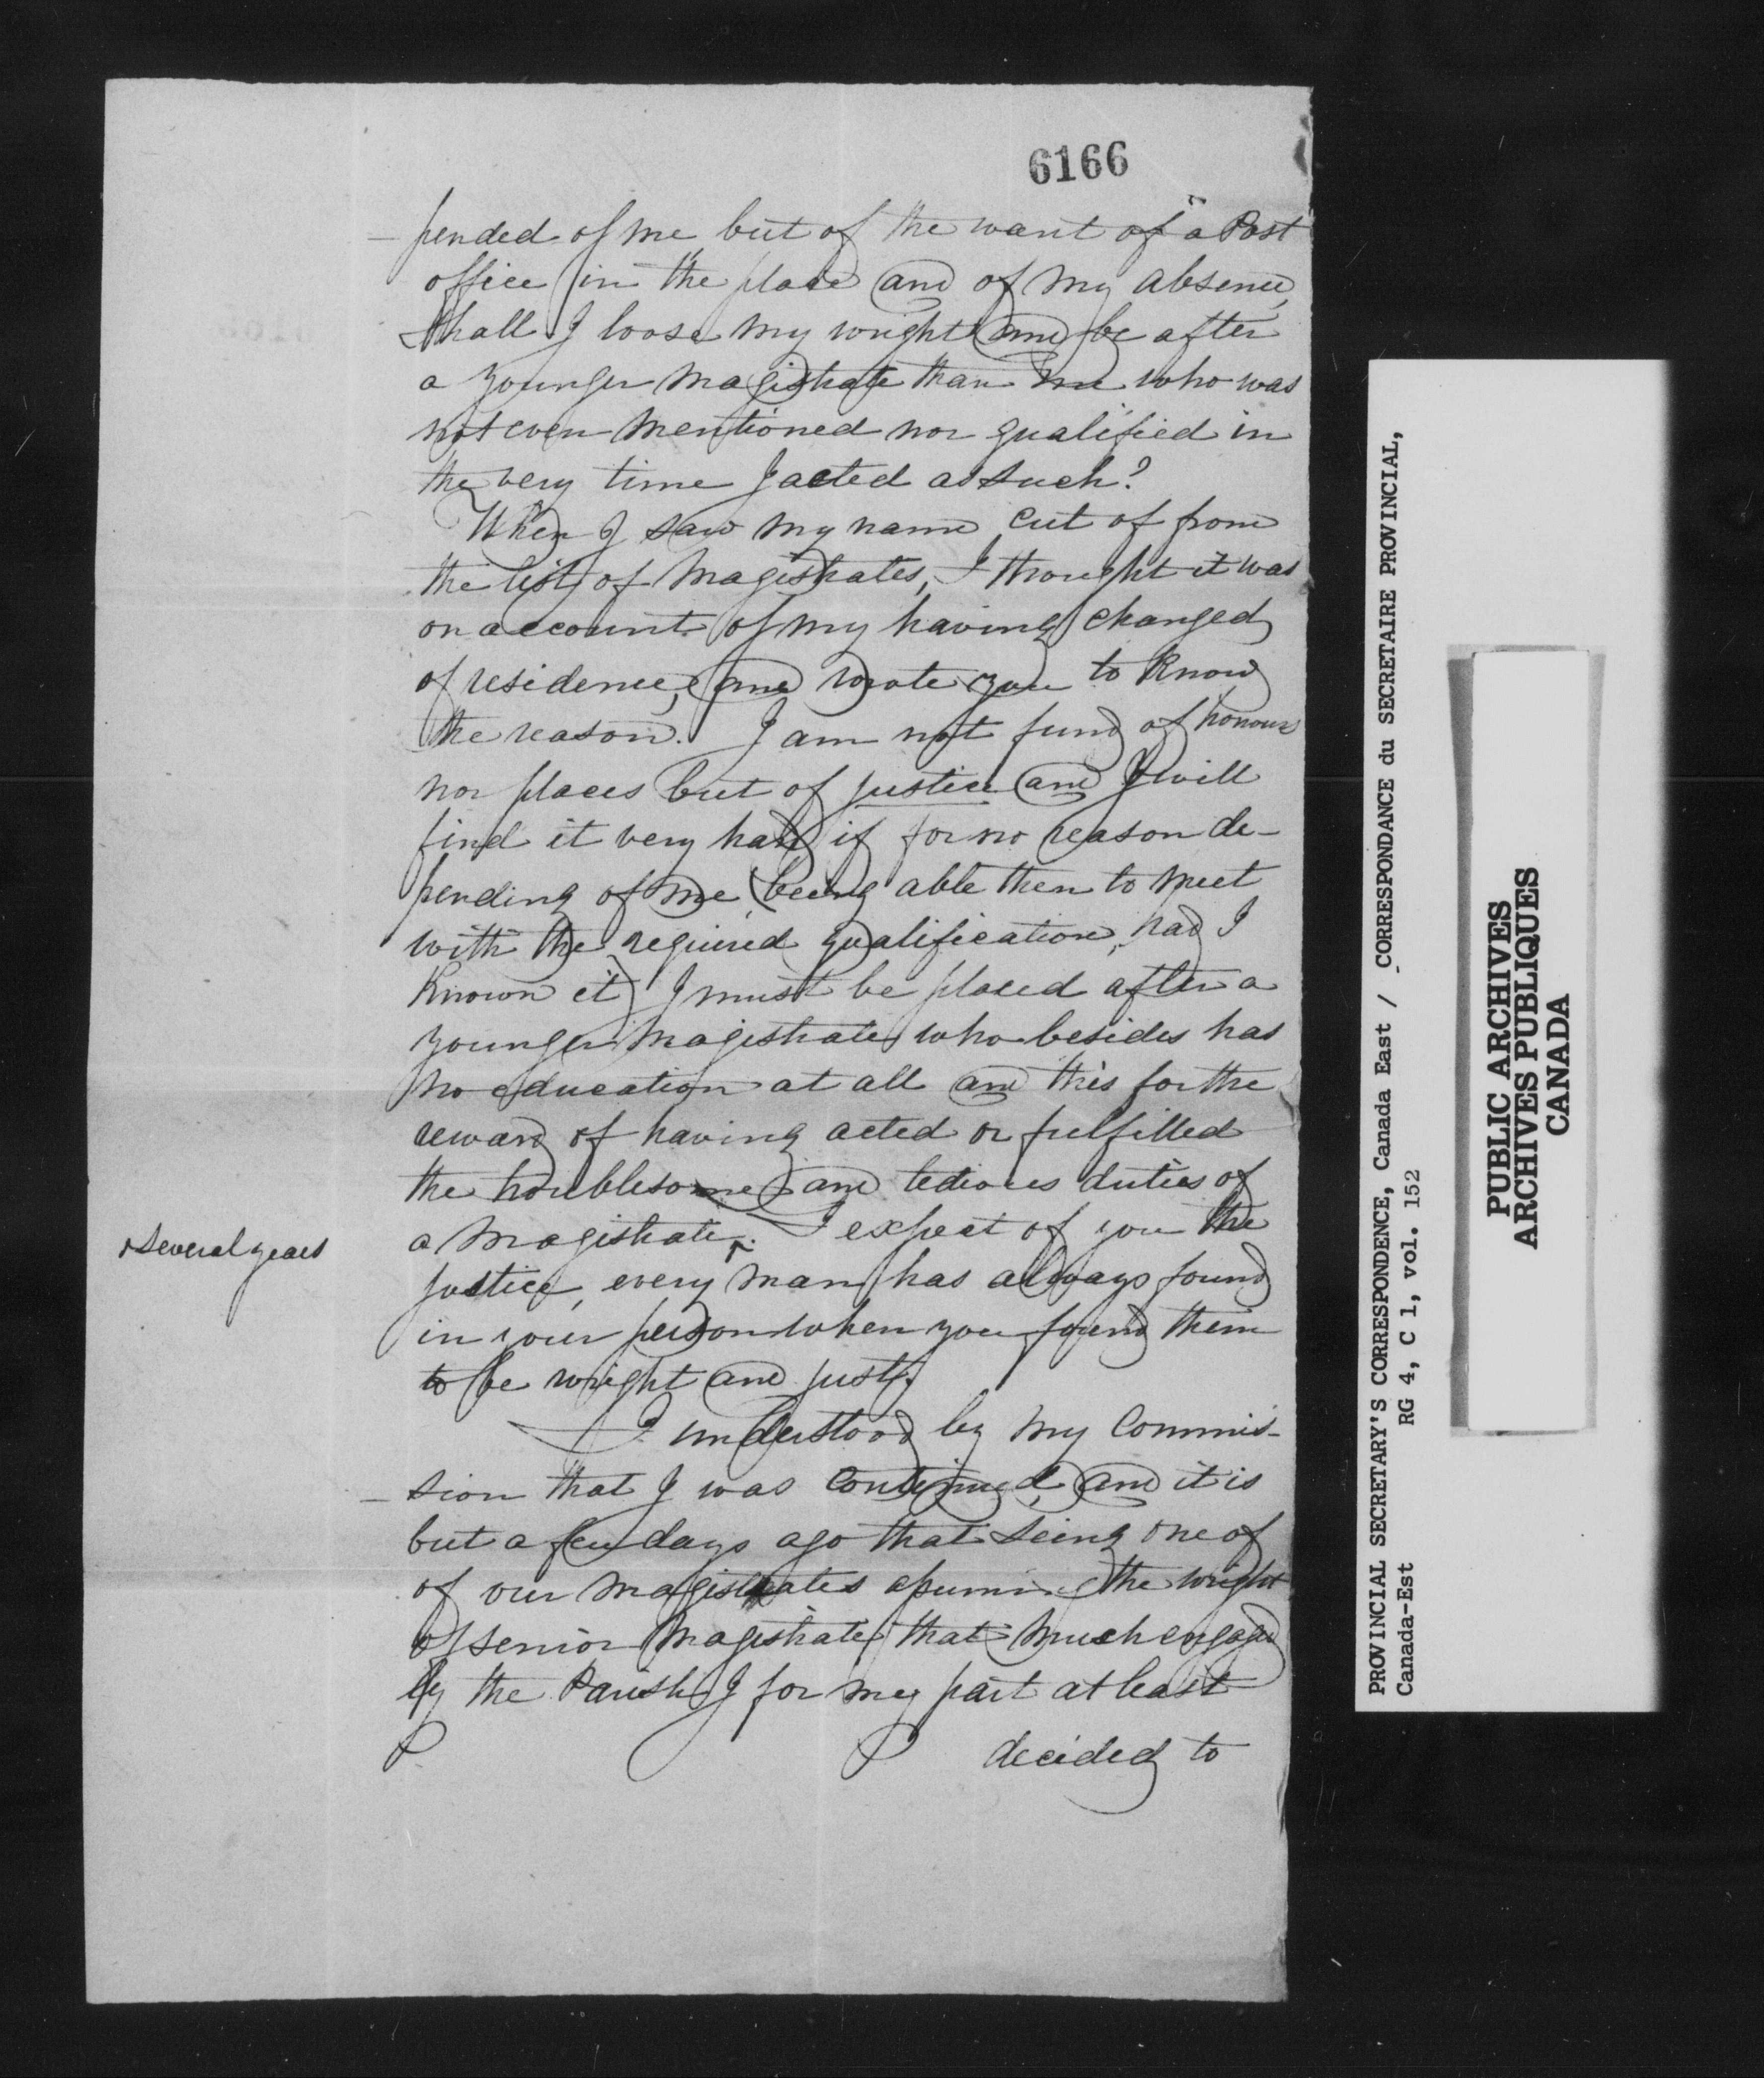 6166
- pended of me but of the want of a Post
office in the place and of my absence,
shall I loose my wright and be after
a younger magistrate than me who was
not even mentioned nor qualified in
the very time I acted as such?
When I saw my name cut of from
the list of Magistrates, I thought it was
on account of my having changed
of residence, and wrote you to know
the reason. I am not fund of honours
nor places but of justice and I will
find it very hard if for no reason de-
pending of me, being able then to meet
with the required qualification, had I
known it, I must be placed after a
younger magistrate who besides has
no education at all and this for the
reward of having acted or fulfilled
the troublesome and tedious duties of
+ several years
a magistrate. I expect of you the
justice, every man has always found
in your person when you found them
to be wright and just.
I understood by my Commis-
- sion that I was continued, and it is
but a few days ago that seing one of
of our magistrates assuming the wright
of senior magistrate, that much engaged
by the Parish, I for my part at least
decided to
PROVINCIAL SECRETARY'S CORRESPONDENCE, Canada East / CORRESPONDANCE du SECRETAIRE PROVINCIAL,
Canada-Est RG 4, C 1, vol. 152
PUBLIC ARCHIVES
ARCHIVES PUBLIQUES
CANADA